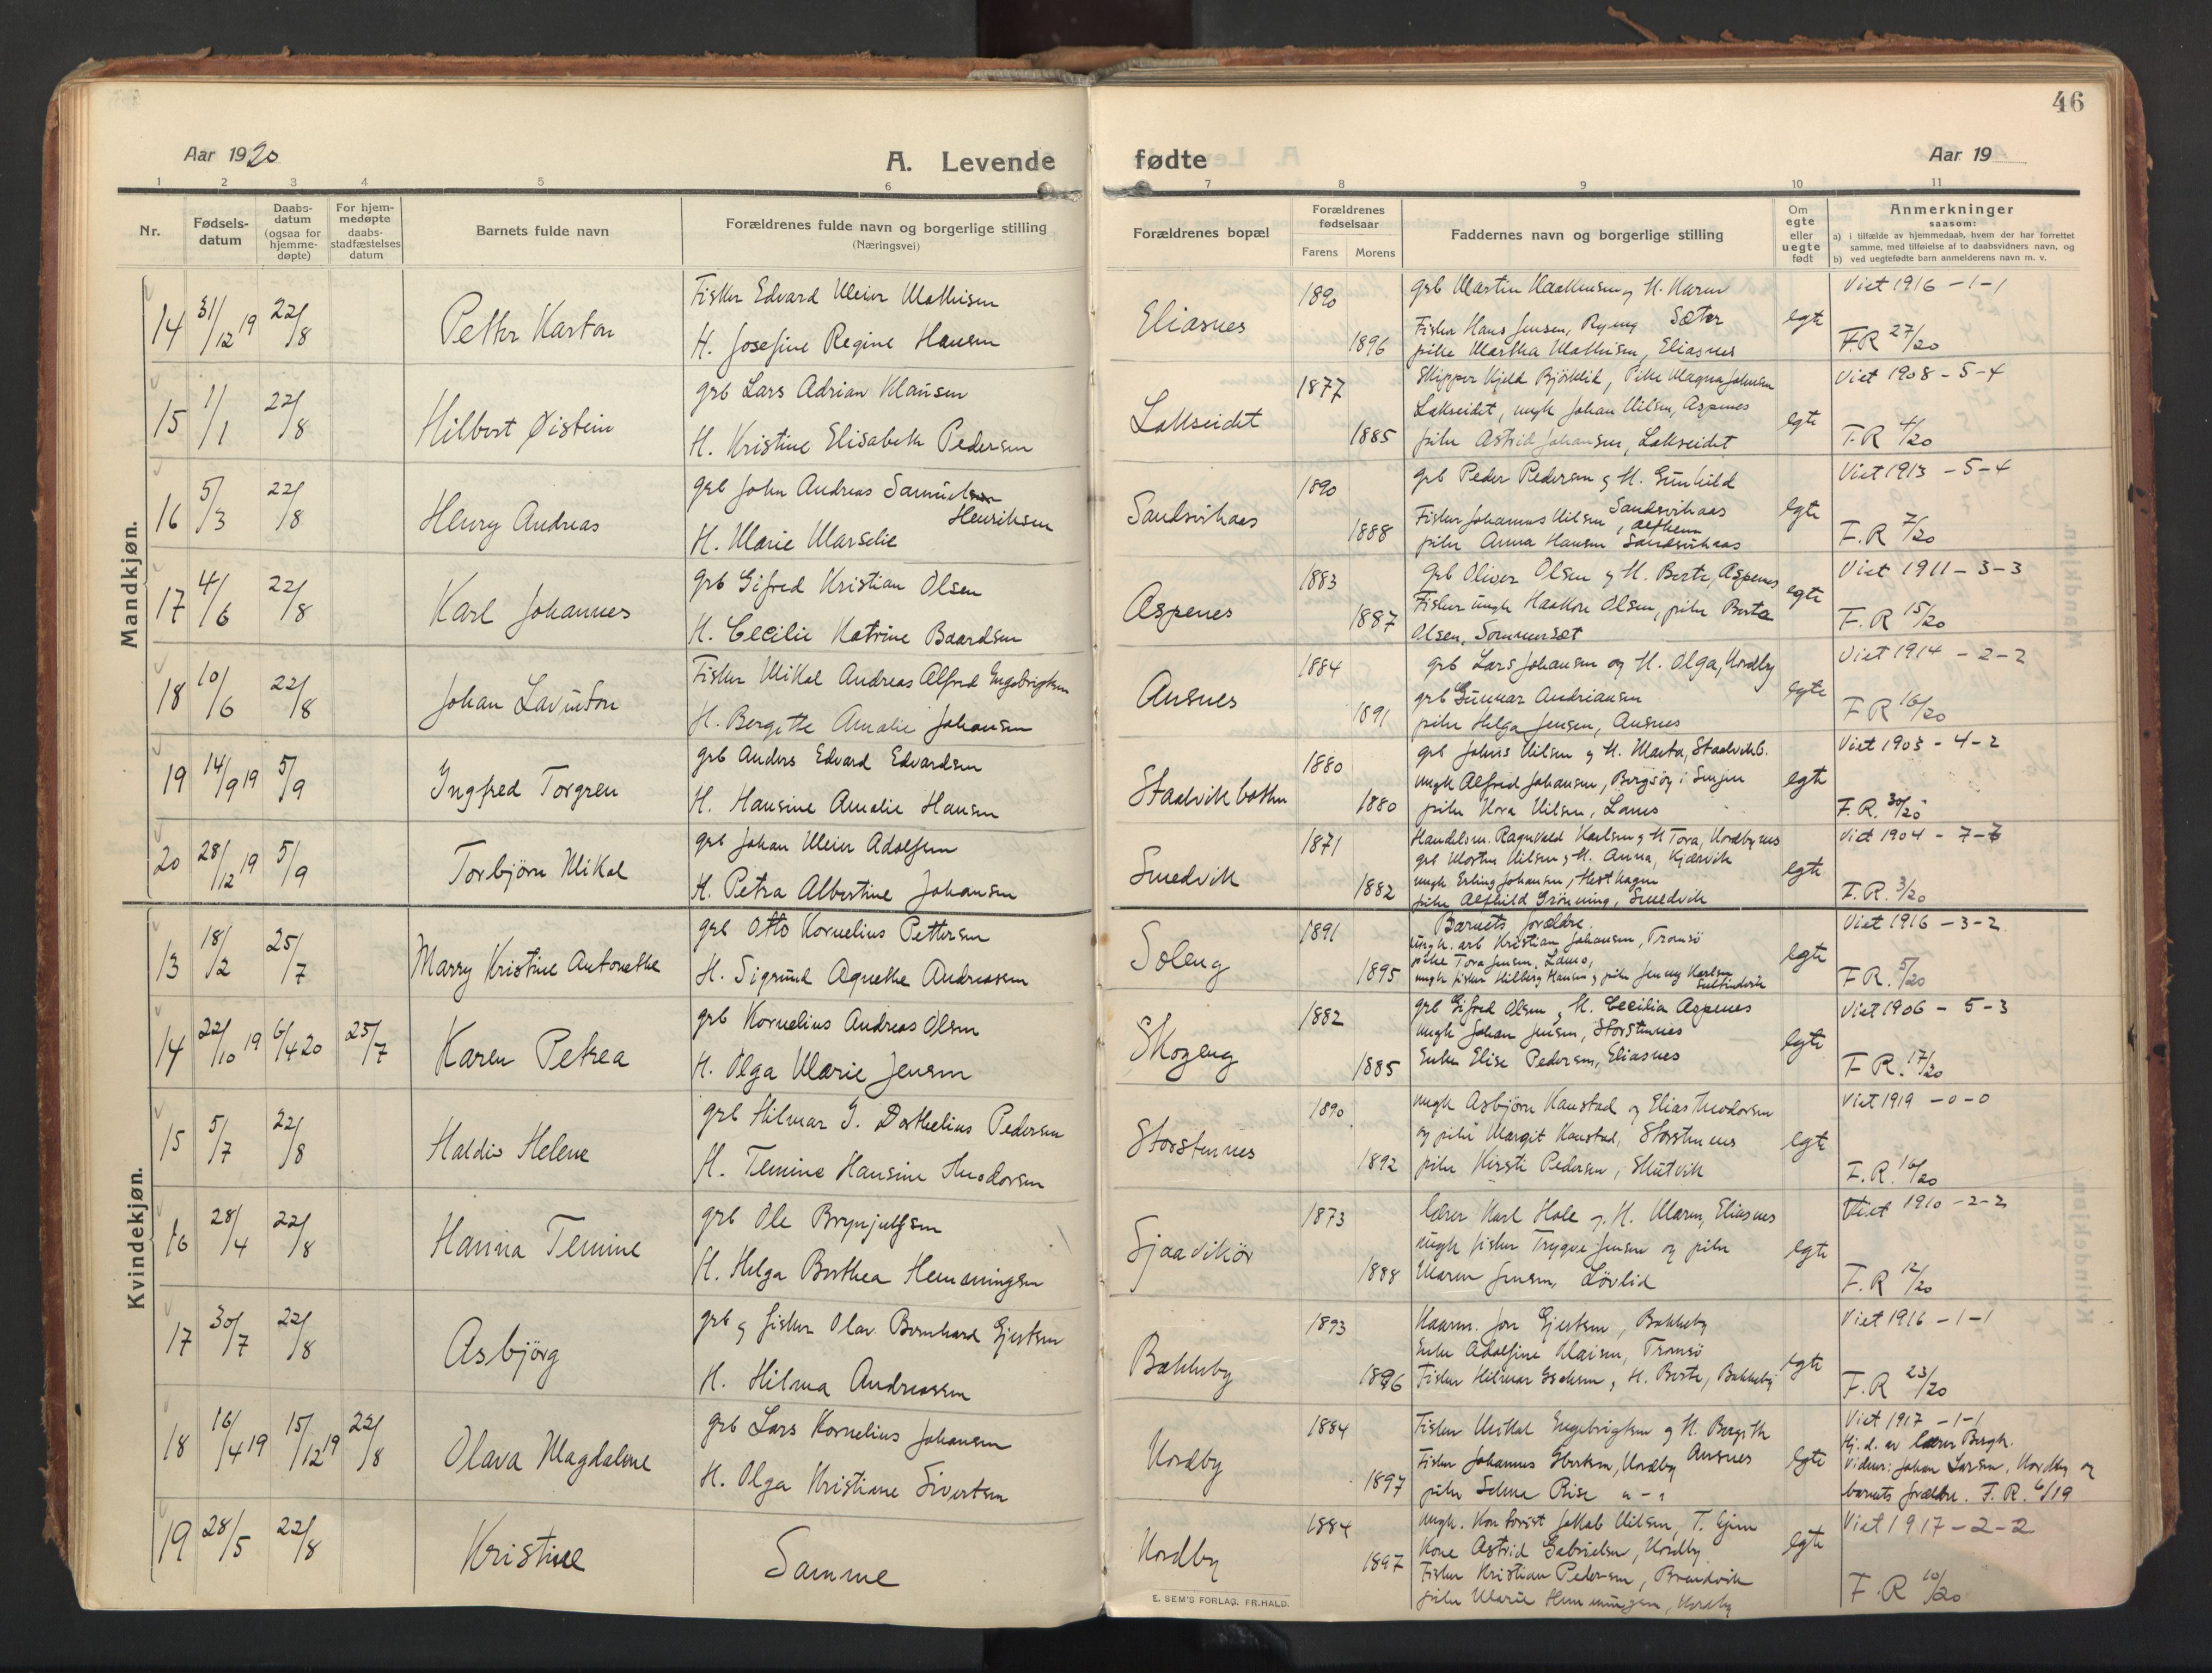 46
Aar 1920
A. Levende
fødte
Aar 19
1 2 3 4 5 6 7 8 9 10 11
Nr.
Fødsels-
datum
Daabs-
datum
(ogsaa for
hjemme-
døpte)
For hjem-
medøpte
daabs-
stadfæstelses
datum
Barnets fulde navn
Forældrenes fulde navn og borgerlige stilling
(Næringsvei)
Forældrenes bopæl
Forældrenes
fødselsaar
Farens Morens
Faddernes navn og borgerlige stilling
Om
egte
eller
uegte
født
Anmerkninger
saasom:
a) i tilfælde av hjemmedaab, hvem der har forrettet
samme, med tilføielse af to daabsvidners navn, og
b) ved uegtefødte barn anmelderens navn m. v.
Mandkjøn.
14 31/12 19 22/8 Petter Karton
Fisker Edvard Meier Mathisen
H. Josefine Regine Hansen
Eliasnes 1890 1896
grb Martin Haakensen og H. Karen
Sæter
Fisker Hans Jensen, Ryeng
pike Martha Mathisen, Eliasnes
egte
Viet 1916 - 1 - 1
F.R 27/20
15 1/1 22/8 Hilbert Øistein
grb Lars Adrian Klausen
H. Kristine Elisabeth Pedersen
Lakseidet 1877 1885
Skipper Kjeld Bjørklid, Pike Magna Johnsen
Lakseidet, ungk Johan Nilsen, Aspenes
pike Astrid Johansen, Lakseidet
egte
Viet 1908 - 5 - 4
F.R 4/20
16 5/3 22/8 Henry Andreas
grb John Andreas Samuelsen
Henriksen
H. Marie Marselie
Sandsvikaas 1890 1888
grb Peder Pedersen og H. Gunhild
Sandsvikaas
Fisker Johannes Nilsen,
pike Anna Hansen Sandsvikaas
egte
Viet 1913 - 5 - 4
F.R 7/20
17 4/6 22/8 Karl Johannes
grb Gifred Kristian Olsen
H. Cecilie Katrine Baardsen
Aspenes 1883 1887
grb Oliver Olsen og H. Berte, Aspenes
Fisker ungk Haakon Olsen, pike Berta
Olsen, Sommerset
egte
Viet 1911 - 3 - 3
F.R 15/20
18 10/6 22/8 Johan Lavinton
Fisker Mikal Andreas Alfred Ingebrigtsen
H. Bergitte Amalie Johansen
Ansnes 1884 1891
grb Lars Johansen og H. Olga, Nordby
grb Gunnar Andriansen
pike Helga Jensen, Ansnes
egte
Viet 1914 - 2 - 2
F R 16/20
19 14/9 19 5/9 Ingfred Torgren
grb Anders Edvard Edvardsen
H. Hansine Amalie Hansen
Staalvikbotn 1880 1880
grb Johns Nilsen og H. Marta, Staalvikb.
ungk Alfred Johansen, Bergsøy i Senjen
pike Nora Nilsen, Lanes
egte
Viet 1903 - 4 - 2
F.R. 30/20
20 28/12 19 5/9 Torbjørn Mikal
grb Johan Meier Adolfsen
H. Petra Albertine Johansen
Smedvik 1871 1882
Handelsm. Ragnvald Karlsen og H Tora, Nordbynes
grb Morten Nilsen og H. Anna, Kjærvik
ungk Erling Johansen, Hesthagen
pike Alfhild Grönning, Smedvik
egte
Viet 1904 - 7 - 6
F.R. 3/20
Kvindekjøn.
13 18/2 25/7 Marry Kristine Antonethe
grb Otto Kornelius Pettersen
H. Sigrund Agnethe Andreassen
Soleng 1891 1895
Barnets forældre,
ungk. arb Kristian Johansen, Tromsø
pike Tora Jensen, Lanes,
ungk fisker Hilberg Hansen og pike Jenny Karlsen
egte
Viet 1916 - 3 - 2
F R. 5/20
14 22/10 19 6/4 20 25/7 Karen Petrea
grb Kornelius Andreas Olsen
H. Olga Marie Jensen
Skogeng 1882 1885
grb Gifred Olsen og H. Cecilia Aspenes
ungk Johan Jensen, Storstennes
Enke Elise Pedersen, Eliasnes
egte
Viet 1906 - 5 - 3
F R. 17/20
15 5/7 22/8 Haldis Helene
grb Hilmar J. Dorthelius Pedersen
H. Temine Hansine Theodorsen
Storstennes 1890 1892
ungk Asbjørn Kaustad og Elias Theodorsen
og pike Margit Kaustad, Storstennes
pike Kirsti Pedersen, Skutvik
egte
Viet 1919 - 0 - 0
F.R. 16/20
16 28/4 22/8 Hanna Temine
grb Ole Brynjulfsen
H. Helga Berthea Hemmingsen
Sjaavikør 1873 1888
Lærer Karl Hole og H. Maren, Eliasnes
ungk fisker Trygve Jensen og pike
Maren Jensen, Løvlid
egte
Viet 1910 - 2 - 2
F.R 12/20
17 30/7 22/8 Asbjörg
grb og fisker Olav Bernhard Gjertsen
H. Hilma Andreassen
Bakkeby 1893 1896
Kaarm. Jon Gjertsen, Bakkeby
Enke Adolfine Olaisen, Tromsø
Fisker Hilmar Isaksen og H. Berte, Bakkeby
egte
Viet 1916 - 1 - 1
F.R 23/20
18 16/4 19 15/12 19 22/8 Olava Magdalene
grb Lars Kornelius Johansen
H. Olga Kristiane Sivertsen
Nordby 1884 1897
Fisker Mikal Ingebrigtsen og H. Bergith
Ansnes
Fisker Johannes Sivertsen, Nordby
pike Selma Rise " - "
egte
Viet 1917 - 1 - 1
Hj. d. av lærer Bergh.
Vidner: Johan Larsen, Nordby og
barnets forældre. F.R. 6/19
19 28/5 22/8 Kristine
Samme
Nordby 1884 1897
ungk. Kontorist Jakob Nilsen, T.
Kone Astrid Gabrielsen, Nordby
Fisker Kristian Pedersen, Brendvik
pike Marie Hemmingsen, Nordby
egte
Viet 1917 - 2 - 2
F. R 10/20
E. SEM'S FORLAG. FR.HALD.